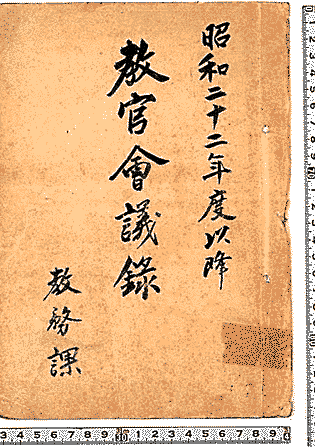 昭和二十二年度以降
教官會議録
教務課